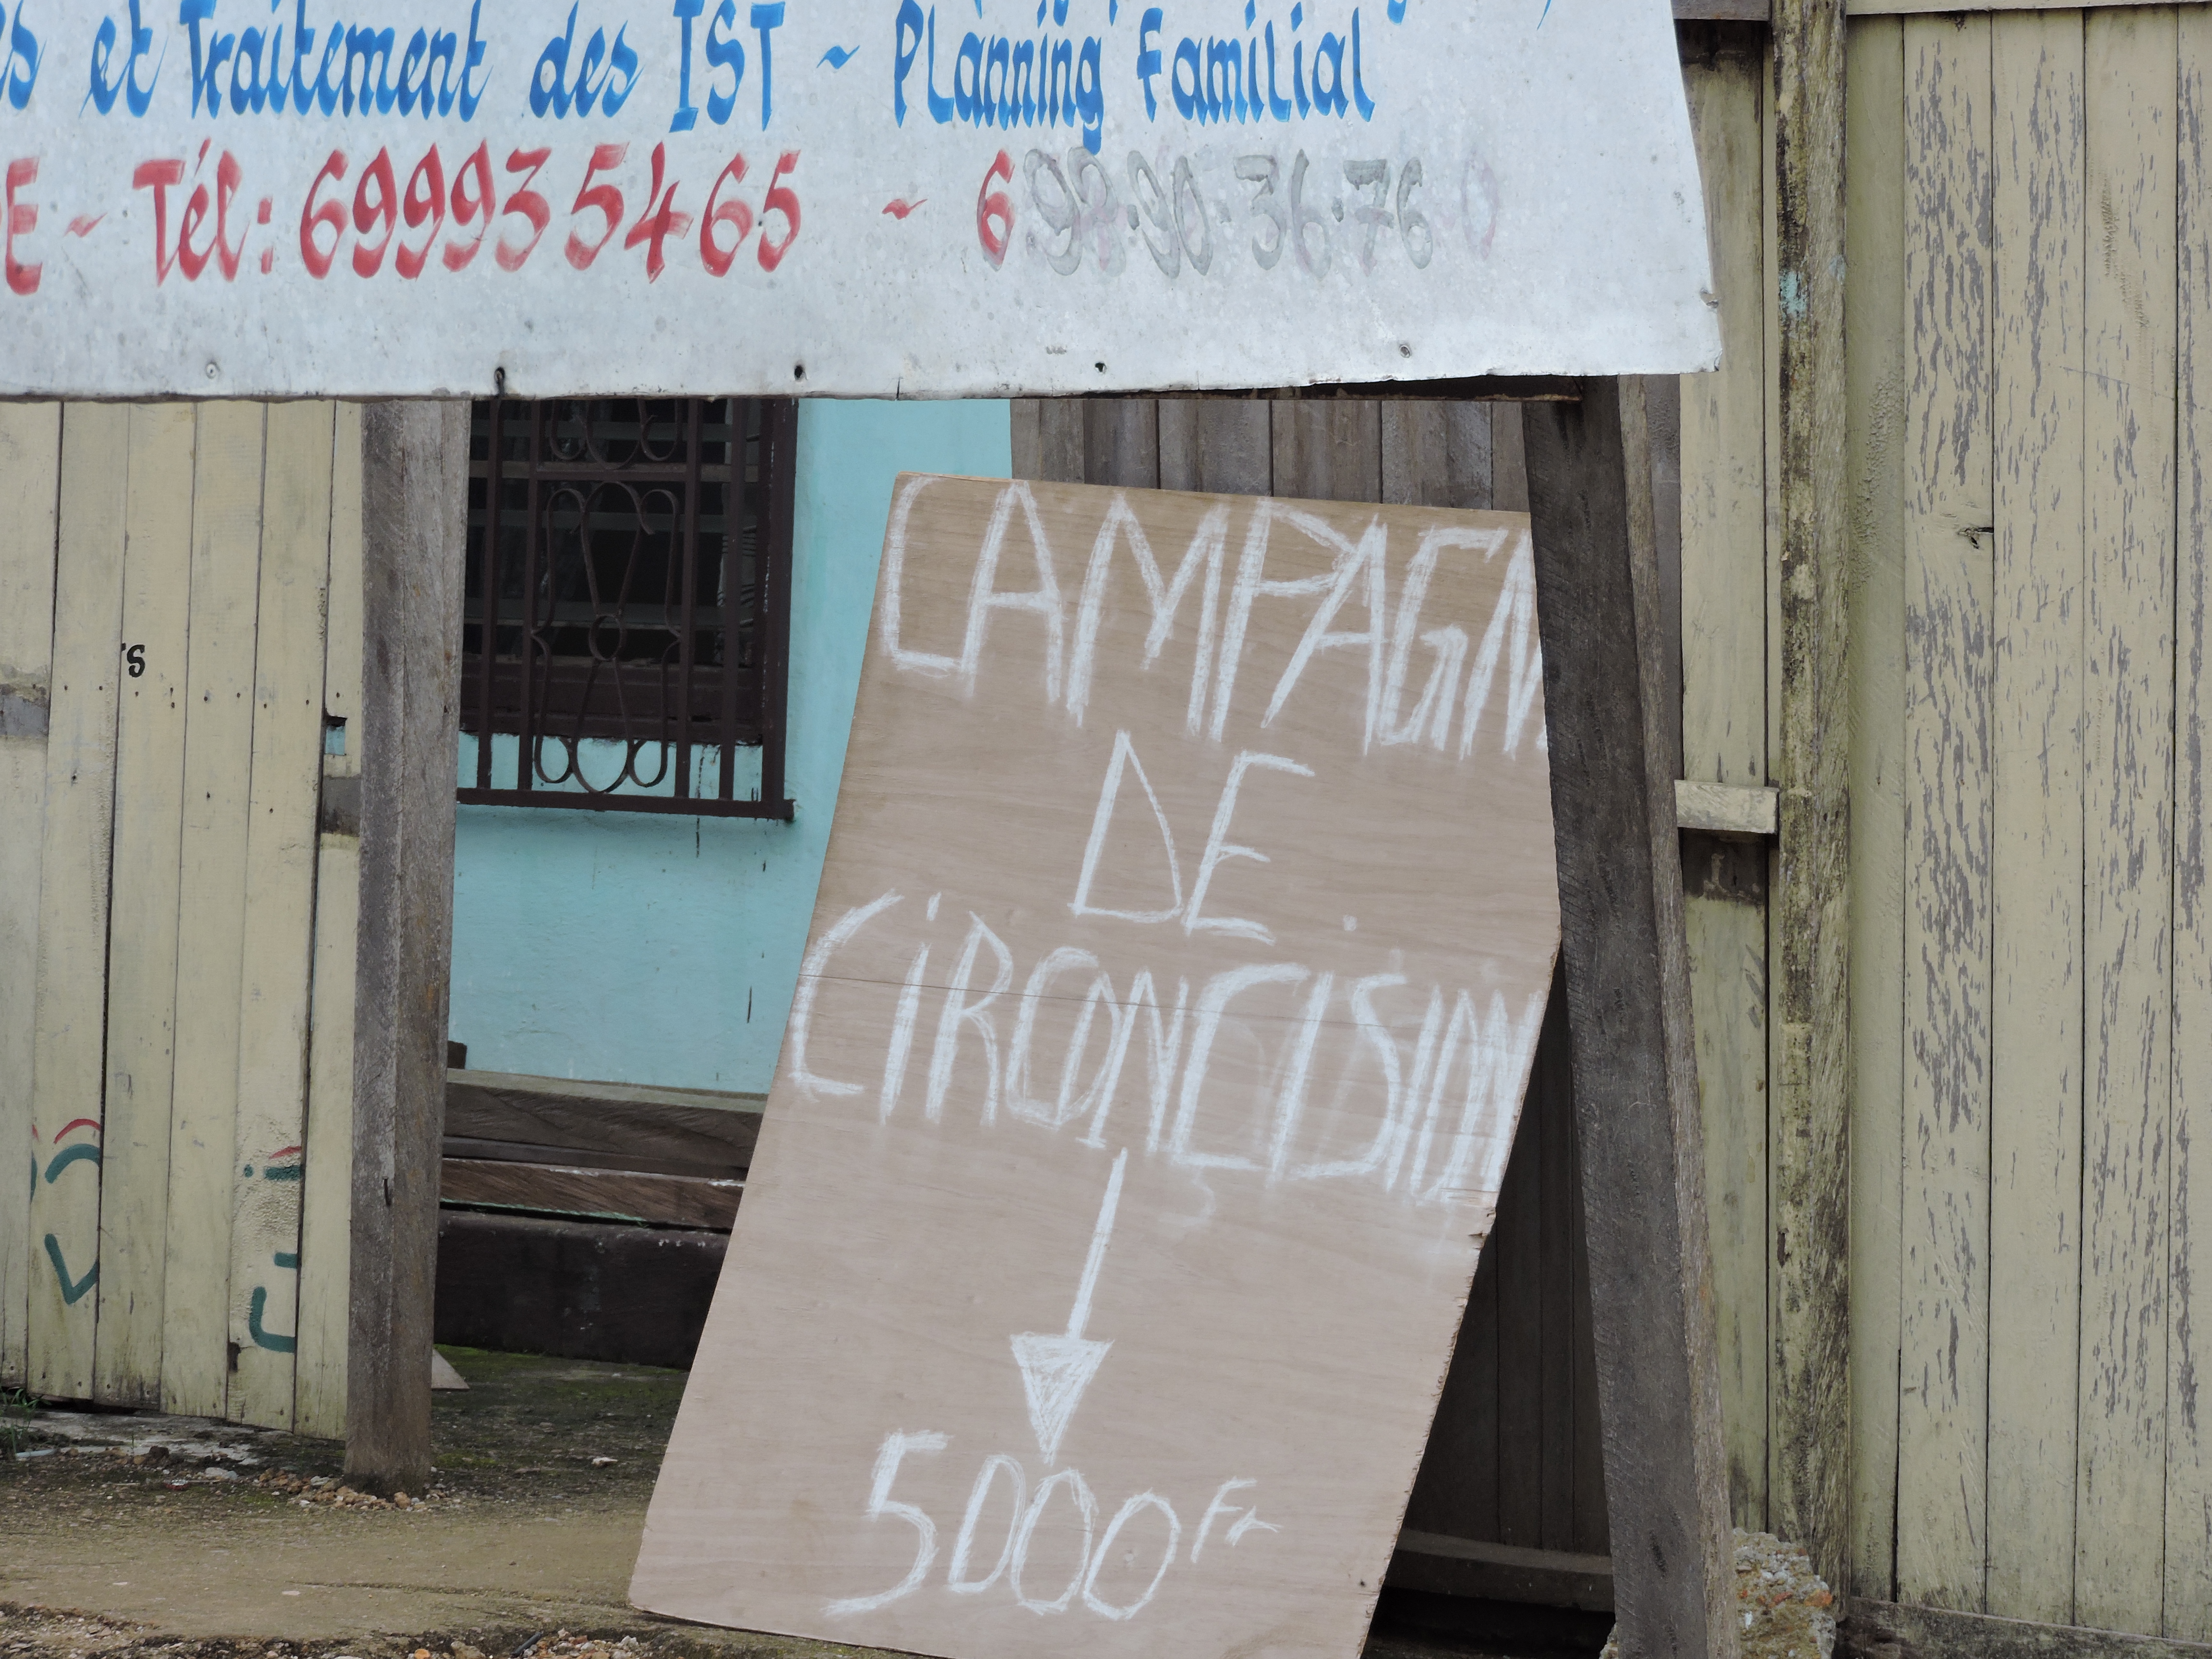 et Traitement des IST ~ Planning Familial
~ Tél: 699935465 ~ 699.90.36.76
CAMPAGN
DE
CIRONCISION
5000 Fr